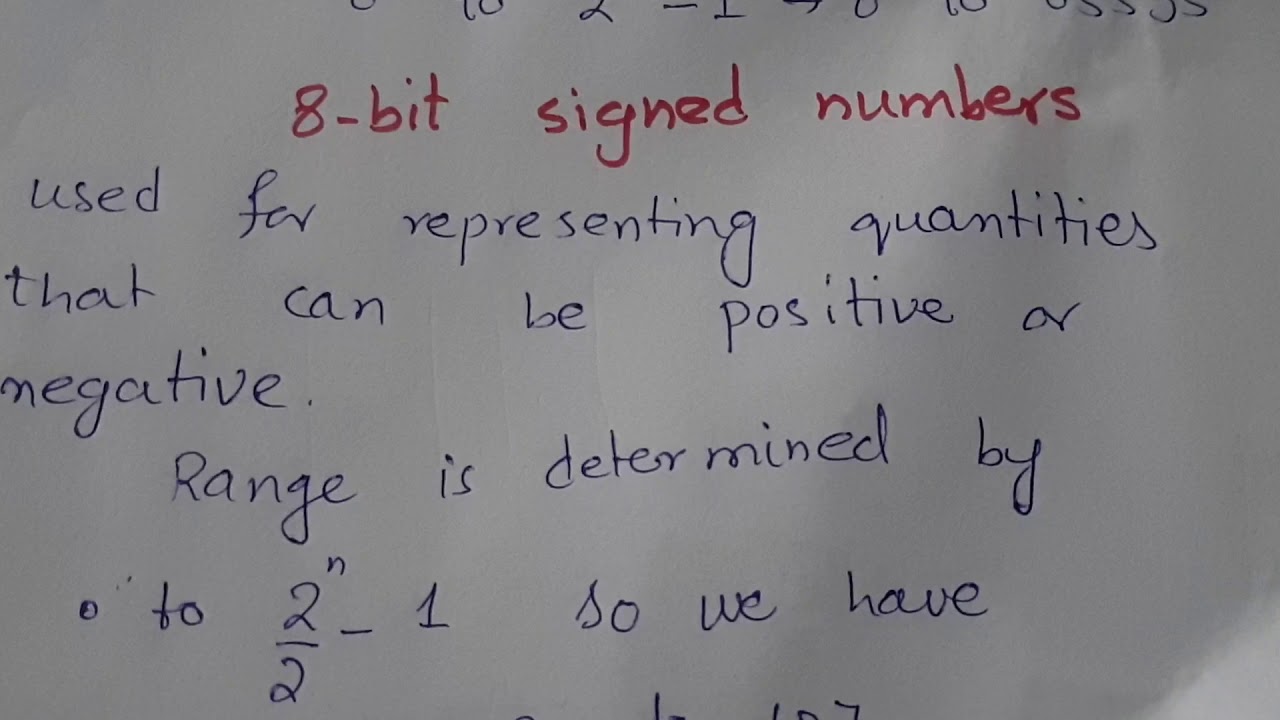 to 2 - 1 → 0 to
8-bit signed numbers
used for representing quantities
that can be positive or
negative.
Range is determined by
0 to 2^n/2 - 1 so we have